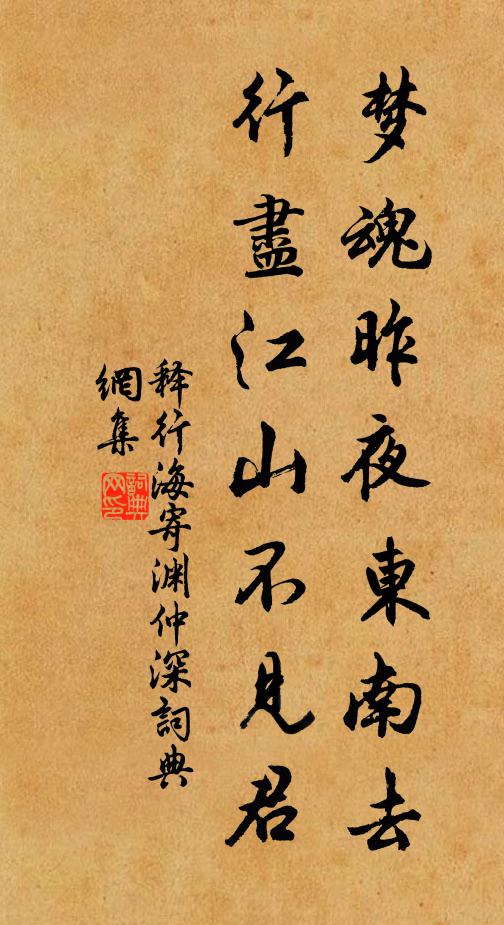 梦魂昨夜東南去
行盡江山不見君
释行海寄渊仲深詞典
網集
詞典
网印